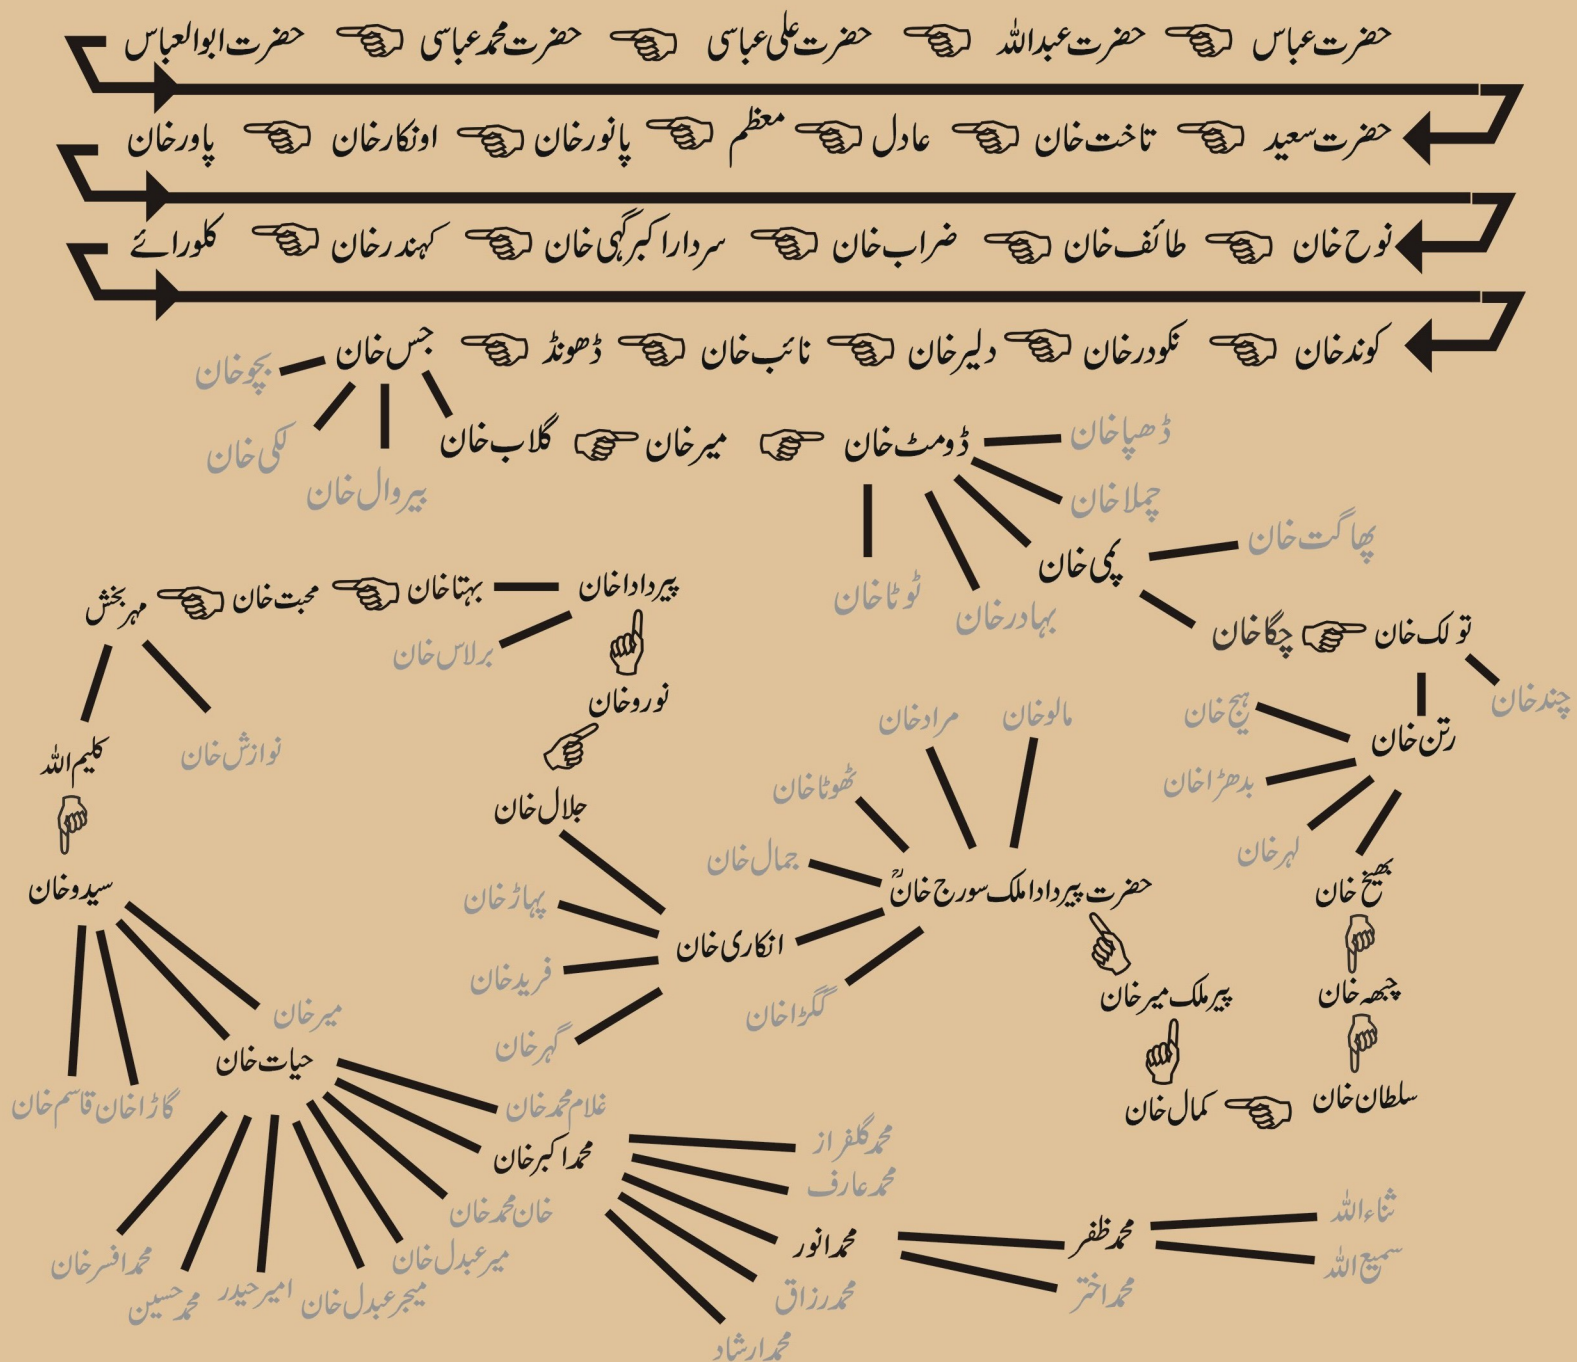 حضرت عباس حضرت عبداللہ حضرت علی عباسی حضرت محمد عباسی حضرت ابوالعباس
حضرت سعید تاخت خان عادل معظم پانور خان اونکار خان پاور خان
نوح خان طائف خان ضراب خان سردار اکبر گہی خان کہندر خان کلورائے
کوند خان نکودر خان دلیر خان نائب خان ڈھونڈ جس خان
بچو خان
لکی خان
بیروال خان
گلاب خان میر خان ڈومٹ خان
ڈھپا خان
چملا خان
پمی خان
بہادر خان
ٹوٹا خان
پھاگت خان
چگا خان تولک خان
چند خان
رتن خان
ہیج خان
بدھڑا خان
لہر خان
بھیخ خان
چبھہ خان
سلطان خان
کمال خان
پیر ملک میر خان
حضرت پیر دادا ملک سورج خانؒ
مالو خان
مراد خان
ٹھوٹا خان
جمال خان
انکاری خان
گگڑا خان
جلال خان
پہاڑ خان
فرید خان
گہر خان
نورو خان
پیر دادا خان
بہتا خان محبت خان مہر بخش
برلاس خان
نوازش خان
کلیم اللہ
سیدو خان
میر خان
حیات خان
گاڑا خان
قاسم خان
غلام محمد خان
محمد اکبر خان
خان محمد خان
میر عبدل خان
میجر عبدل خان
امیر حیدر
محمد حسین
محمد افسر خان
محمد گلفراز
محمد عارف
محمد انور
محمد رزاق
محمد ارشاد
محمد ظفر
محمد اختر
ثناء اللہ
سمیع اللہ